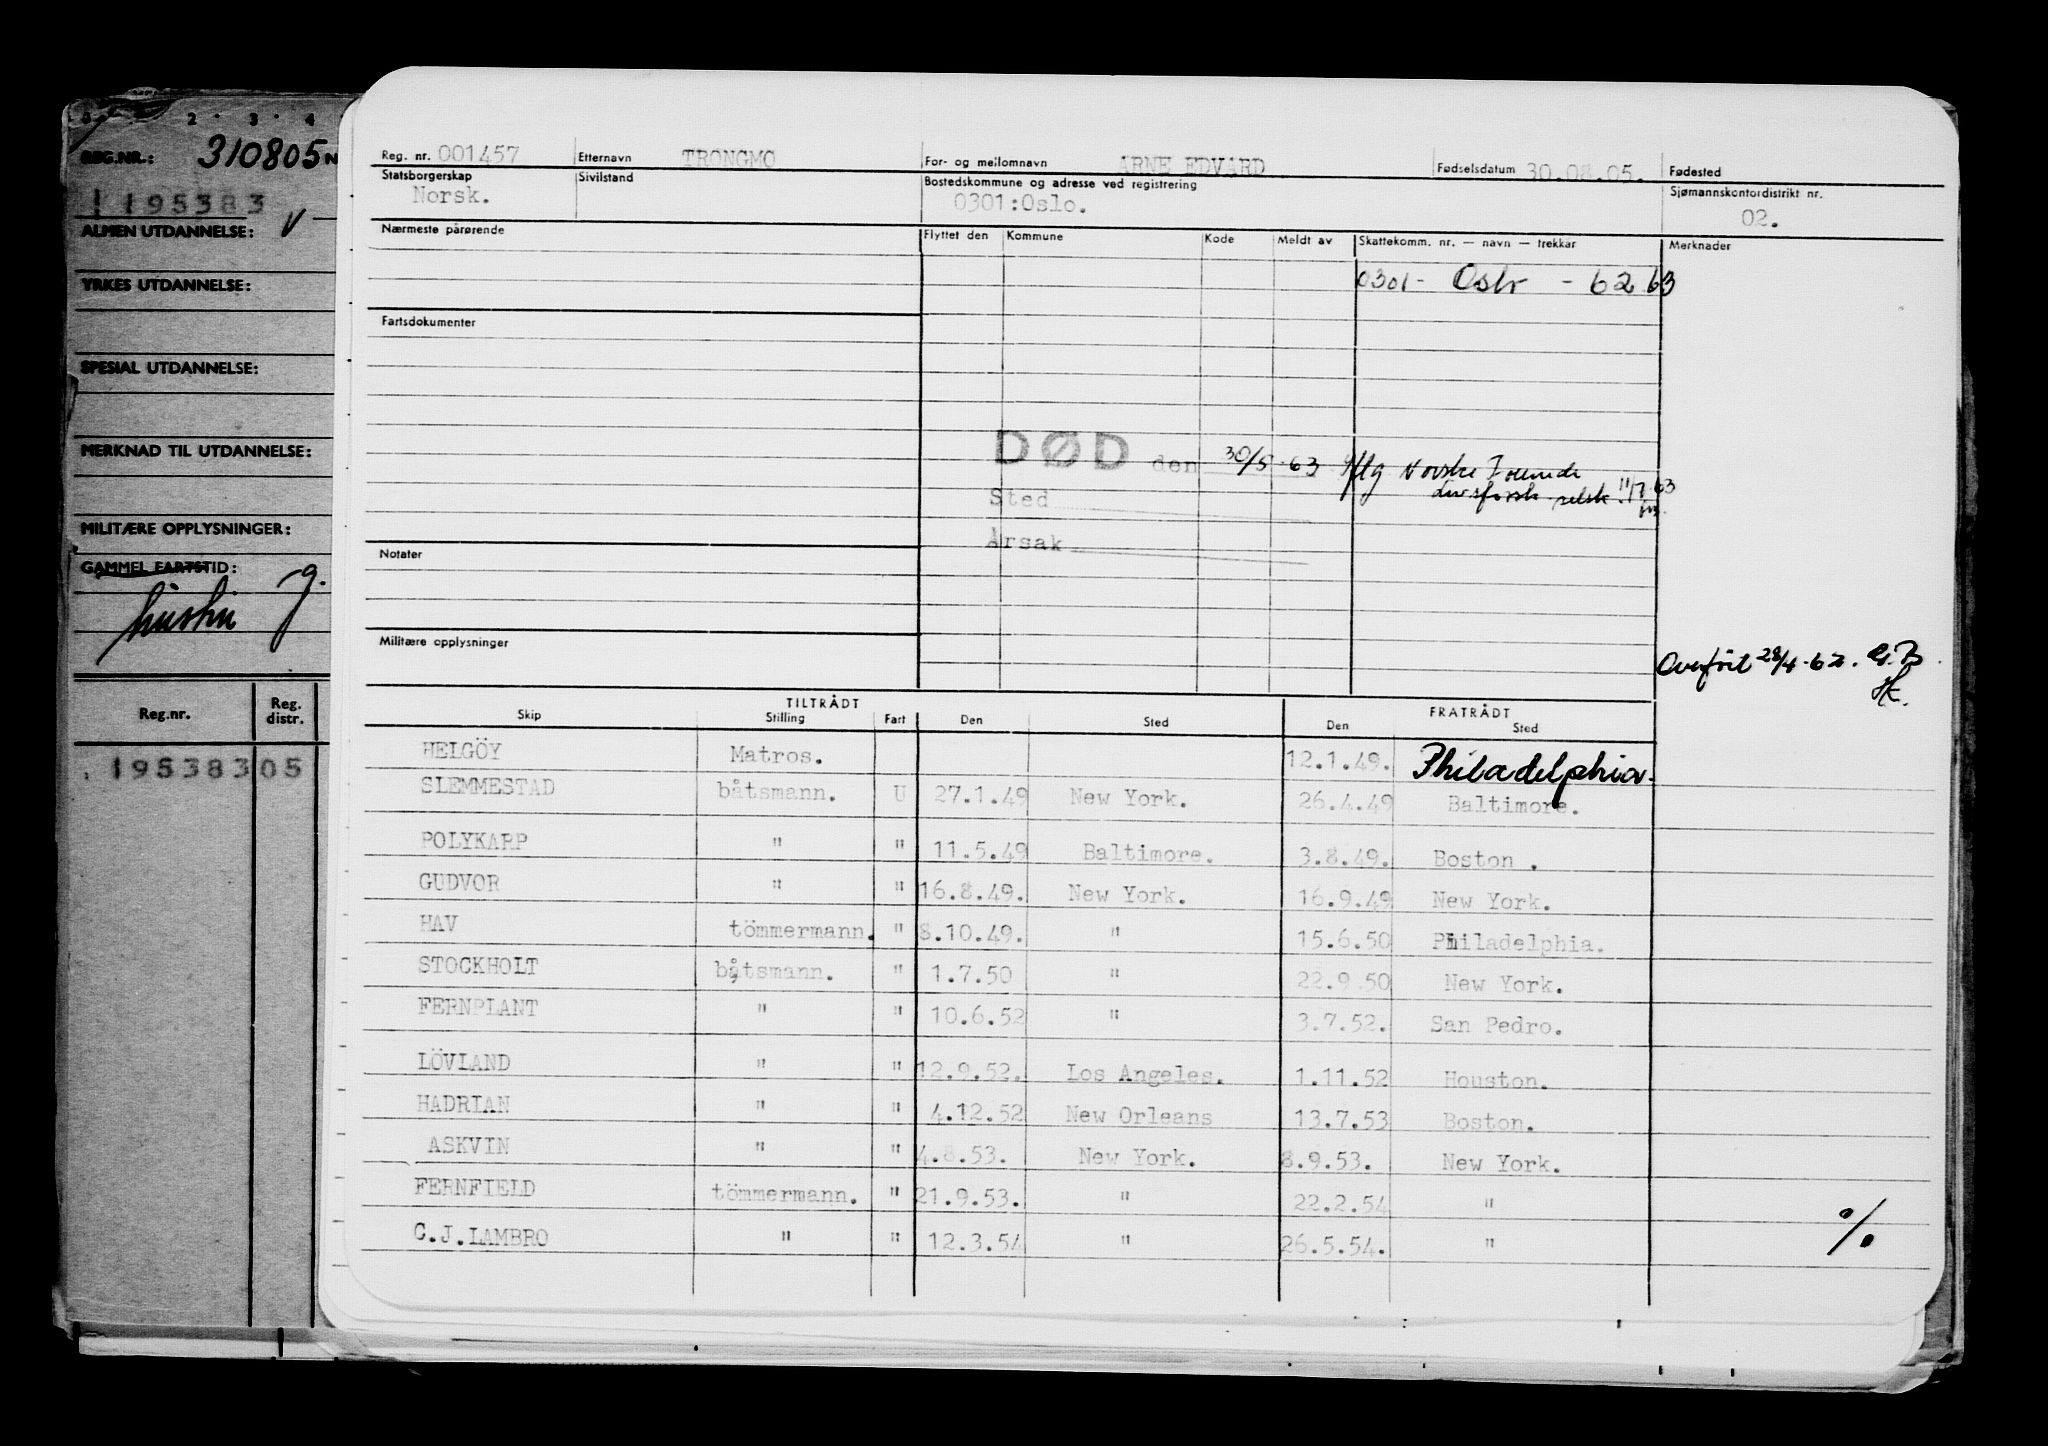 2 · 3 · 4
REG.NR.: 310805 N
195383
ALMEN UTDANNELSE: V
YRKES UTDANNELSE:
SPESIAL UTDANNELSE:
MERKNAD TIL UTDANNELSE:
MILITÆRE OPPLYSNINGER:
GAMMEL FARTSTID: g.
Reg.nr. Reg. distr.
195383 05
Reg. nr. 001457 Etternavn TRONGMO For- og mellomnavn ARNE EDVARD Fødselsdatum 30.08.05. Fødested
Statsborgerskap Sivilstand Bostedskommune og adresse ved registrering Sjømannskontordistrikt nr.
Norsk. 0301:Oslo. 02.
Nærmeste pårørende Flyttet den Kommune Kode Meldt av Skattekomm. nr. — navn — trekkar Merknader
0301 - Oslo - 62 63
Fartsdokumenter
DØD den 30/5-63 iflg Norske
Sted 11/7.63
Årsak
Notater
Militære opplysninger
Overført 28/4-62.
TILTRÅDT FRATRÅDT
Skip Stilling Fart Den Sted Den Sted
HELGÖY Matros. 12.1.49. Philadelphia.
SLEMMESTAD båtsmann. U 27.1.49 New York. 26.4.49 Baltimore.
POLYKARP " " 11.5.49 Baltimore. 3.8.49. Boston .
GUDVOR " " 16.8.49. New York. 16.9.49 New York.
HAV tömmermann. " 8.10.49. " 15.6.50 Philadelphia.
STOCKHOLT båtsmann. " 1.7.50 " 22.9.50 New York.
FERNPLANT " " 10.6.52 " 3.7.52. San Pedro.
LÖVLAND " " 12.9.52. Los Angeles. 1.11.52 Houston.
HADRIAN " " 4.12.52 New Orleans 13.7.53 Boston.
ASKVIN " " 4.8.53. New York. 8.9.53. New York.
FERNFIELD tömmermann. " 21.9.53. " 22.2.54 "
C.J.LAMBRO " " 12.3.54 " 26.5.54. "
%